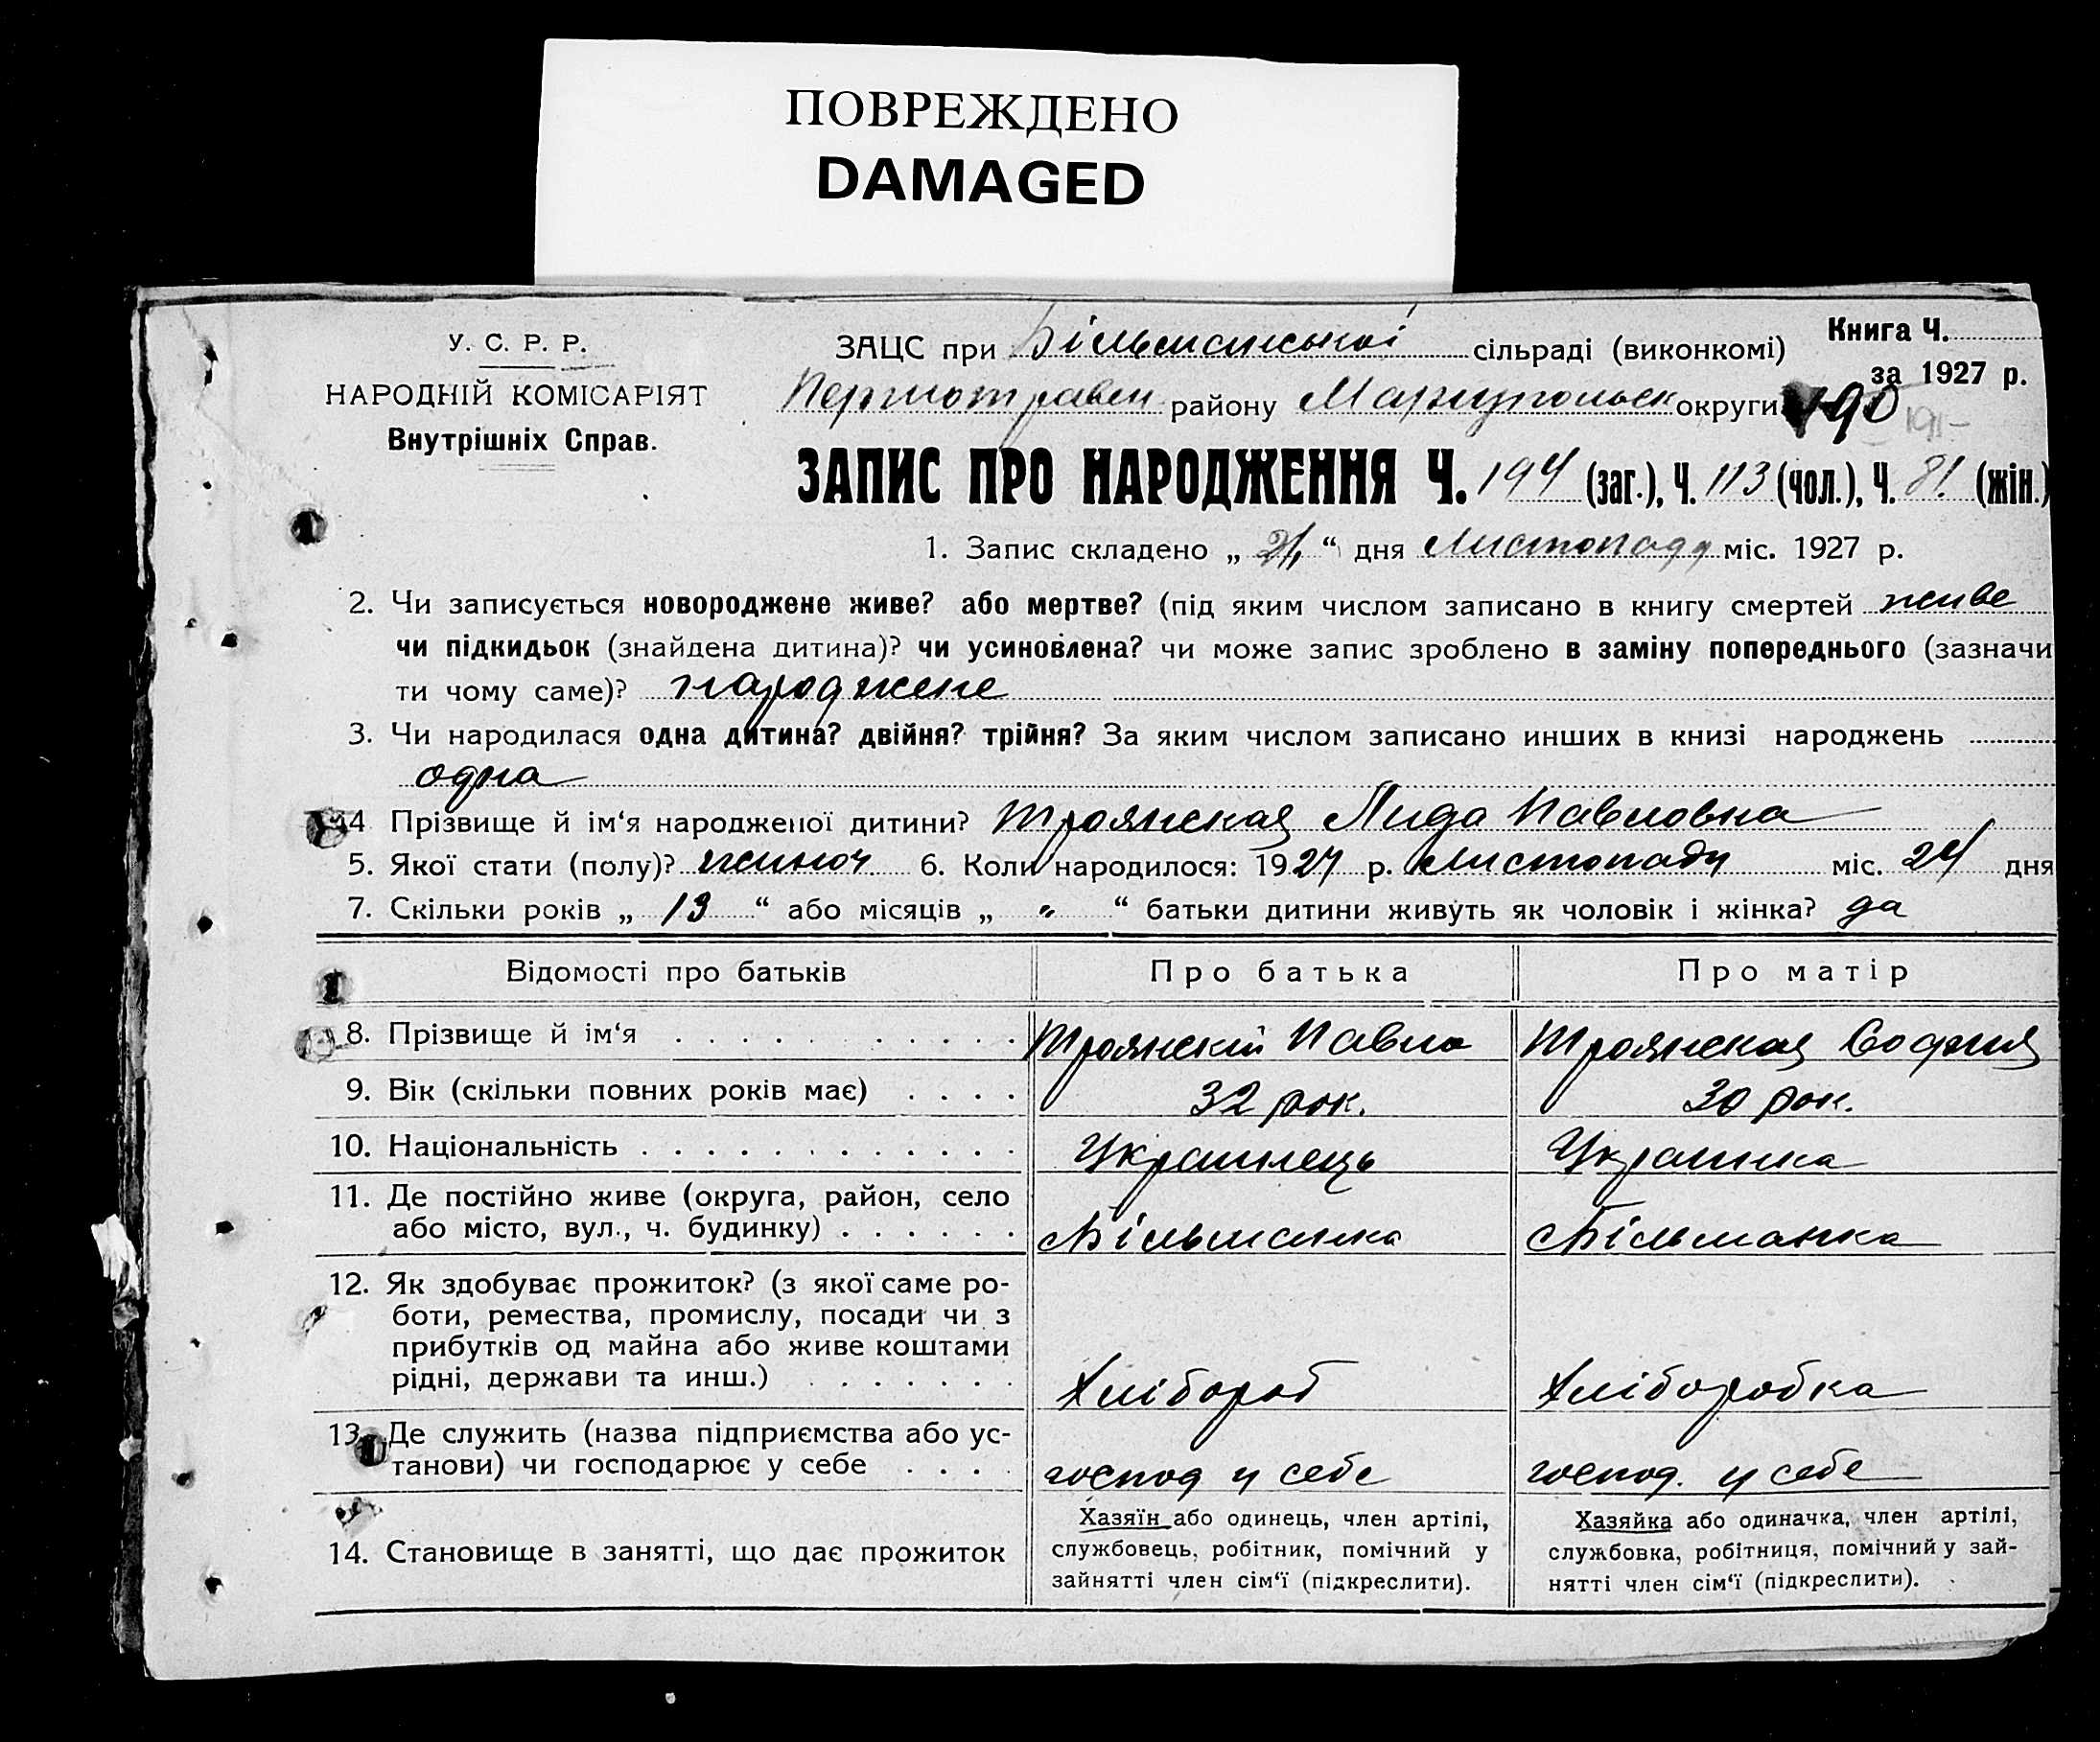 ПОВРЕЖДЕНО
DAMAGED
У. С. Р. Р.
НАРОДНІЙ КОМІСАРІЯТ
Внутрішніх Справ.
ЗАЦС при Більманської сільраді (виконкомі)
Книга Ч.
за 1927 р.
Першотравен району Маріупольск округи 190
ЗАПИС ПРО НАРОДЖЕННЯ Ч. 194 (заг.), Ч. 113 (чол.), Ч. 81. (жін.)
1. Запис складено „ “ дня Листопаду міс. 1927 р.
2. Чи записується новороджене живе? або мертве? (під яким числом записано в книгу смертей живе
чи підкидьок (знайдена дитина)? чи усиновлена? чи може запис зроблено в заміну попереднього (зазначи
ти чому саме)? народжене
3. Чи народилася одна дитина? двійня? трійня? За яким числом записано инших в книзі народжень
одна
4 Прізвище й ім‘я народженої дитини? Троянская Лида Павловна
5. Якої стати (полу)? жиноч 6. Коли народилося: 1927 р. Листопаду міс. 24 дня
7. Скільки років „ 13 “ або місяців „ " “ батьки дитини живуть як чоловік і жінка? да
Відомості про батьків
Про батька
Про матір
8. Прізвище й ім‘я . . . . . . . . . . . Троянский Павло Троянская София
9. Вік (скільки повних років має) . . . . 32 рок. 30 рок.
10. Національність . . . . . . . . . . . . Украинець Украинка
11. Де постійно живе (округа, район, село
або місто, вул., ч. будинку) . . . . . . Більманка Більманка
12. Як здобуває прожиток? (з якої саме ро-
боти, ремества, промислу, посади чи з
прибутків од майна або живе коштами
рідні, держави та инш.) . . . . . . . Хлібороб Хлібаробка
13. Де служить (назва підприємства або ус-
танови) чи господарює у себе . . . . господ у себе господ. у себе
14. Становище в занятті, що дає прожиток
Хазяїн або одинець, член артілі,
службовець, робітник, помічний у
зайнятті член сім‘ї (підкреслити).
Хазяйка або одиначка, член артілі,
службовка, робітниця, помічний у зай-
нятті член сім‘ї (підкреслити).